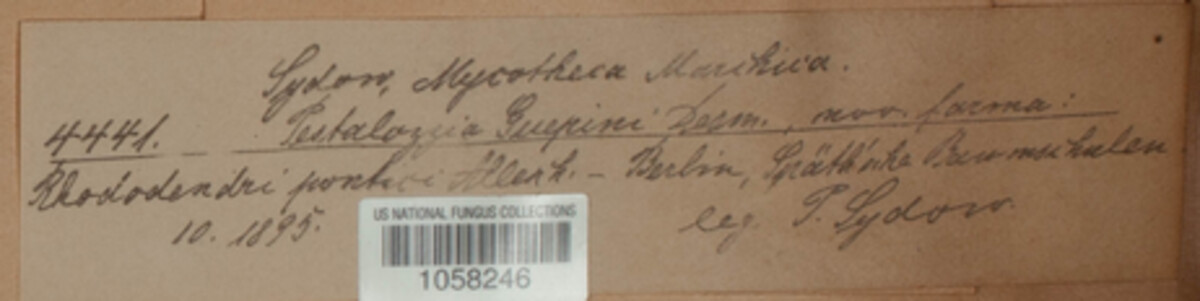 Sydow, Mycotheca Marchica.
4441. Pestalozzia Guepini Desm., nov. forma:
Rhododendri pontici Allesch. – Berlin, Späth'sche Baumschulen
10. 1895. leg. P. Sydow.
US NATIONAL FUNGUS COLLECTIONS
1058246